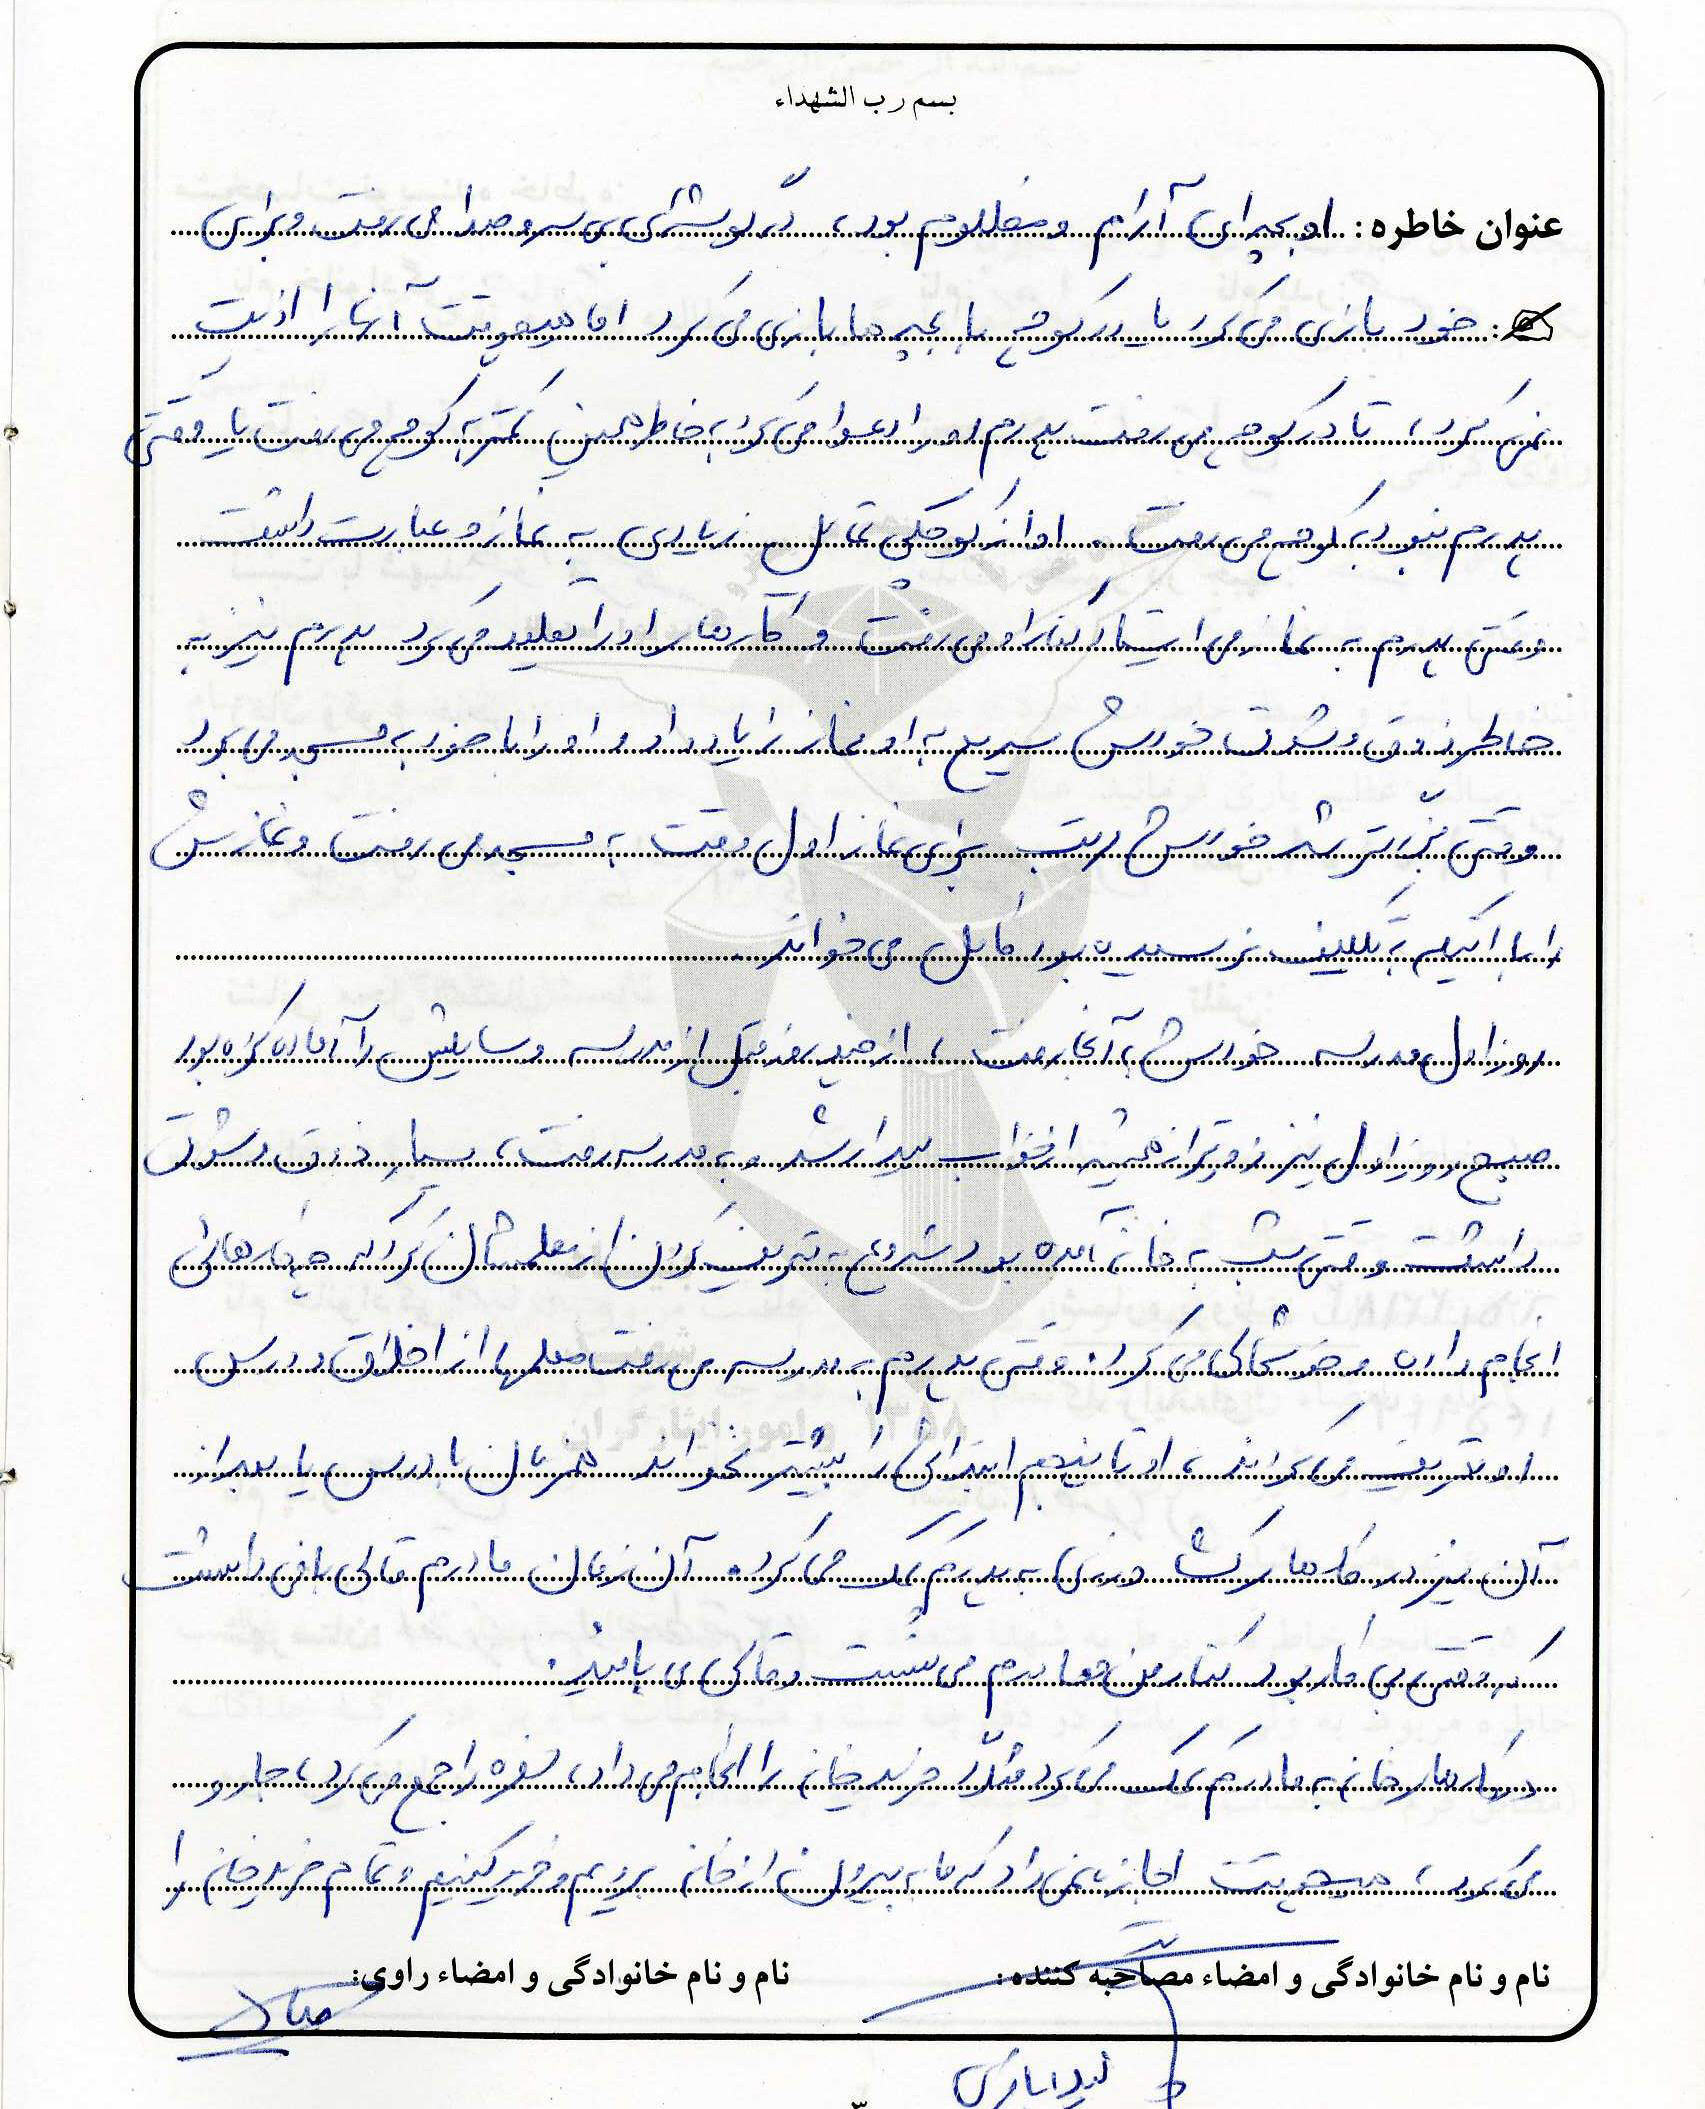 بسم رب الشهداء
عنوان خاطره: او بچه‌ای آرام و مظلوم بود، در گوشه‌ای بی سر و صدا می رفت و برای
خود بازی می کرد یا در کوچه با بچه ها بازی می کرد اما هیچوقت آنها را اذیت
نمی کرد، تا در کوچه می رفت پدرم او را دعوا می کرد به خاطر همین کمتر به کوچه می رفت یا وقتی
پدرم نبود به کوچه می رفت. او از کوچکی تمایل زیادی به نماز و عبادت داشت
وقتی پدرم به نماز می ایستاد کنار او می رفت و کارهای او را تقلید می کرد پدرم نیز به
خاطر ذوق و شوق خودش سریع به او نماز را یاد داد و او را با خود به مسجد می برد
وقتی بزرگتر شد خودش مرتب برای نماز اول وقت به مسجد می رفت و نمازش
را با اینکه به تکلیف نرسیده بود کامل می خواند.
روز اول مدرسه خودش به آنجا رفت، از چند روز قبل از مدرسه وسایلش را آماده کرده بود
صبح روز اول نیز زودتر از همیشه از خواب بیدار شد و به مدرسه رفت، بسیار ذوق و شوق
داشت وقتی شب به خانه آمده بود شروع به تعریف کردن از معلمشان کرد که چه کارهائی
انجام داده و خوشحالی می کرد. وقتی پدرم به مدرسه می رفت معلمها از اخلاق و درس
او تعریف می کردند، او تا پنجم ابتدائی را بیشتر نخواند همزمان با درس یا بعد از
آن نیز در کارهای کشاورزی به پدرم کمک می کرد. آن زمان مادرم قالی بافی داشت
که وقتی بی کار بود کنار من و مادرم می نشست و قالی می بافید.
در کارهای خانه به مادرم کمک می کرد مثلاً خرید خانه را انجام می داد، سفره را جمع می کرد، جارو
می کرد، هیچوقت اجازه نمی داد که ما به بیرون از خانه برویم و خرید کنیم و تمام خرید خانه را
نام و نام خانوادگی و امضاء مصاحبه کننده:
نام و نام خانوادگی و امضاء راوی: